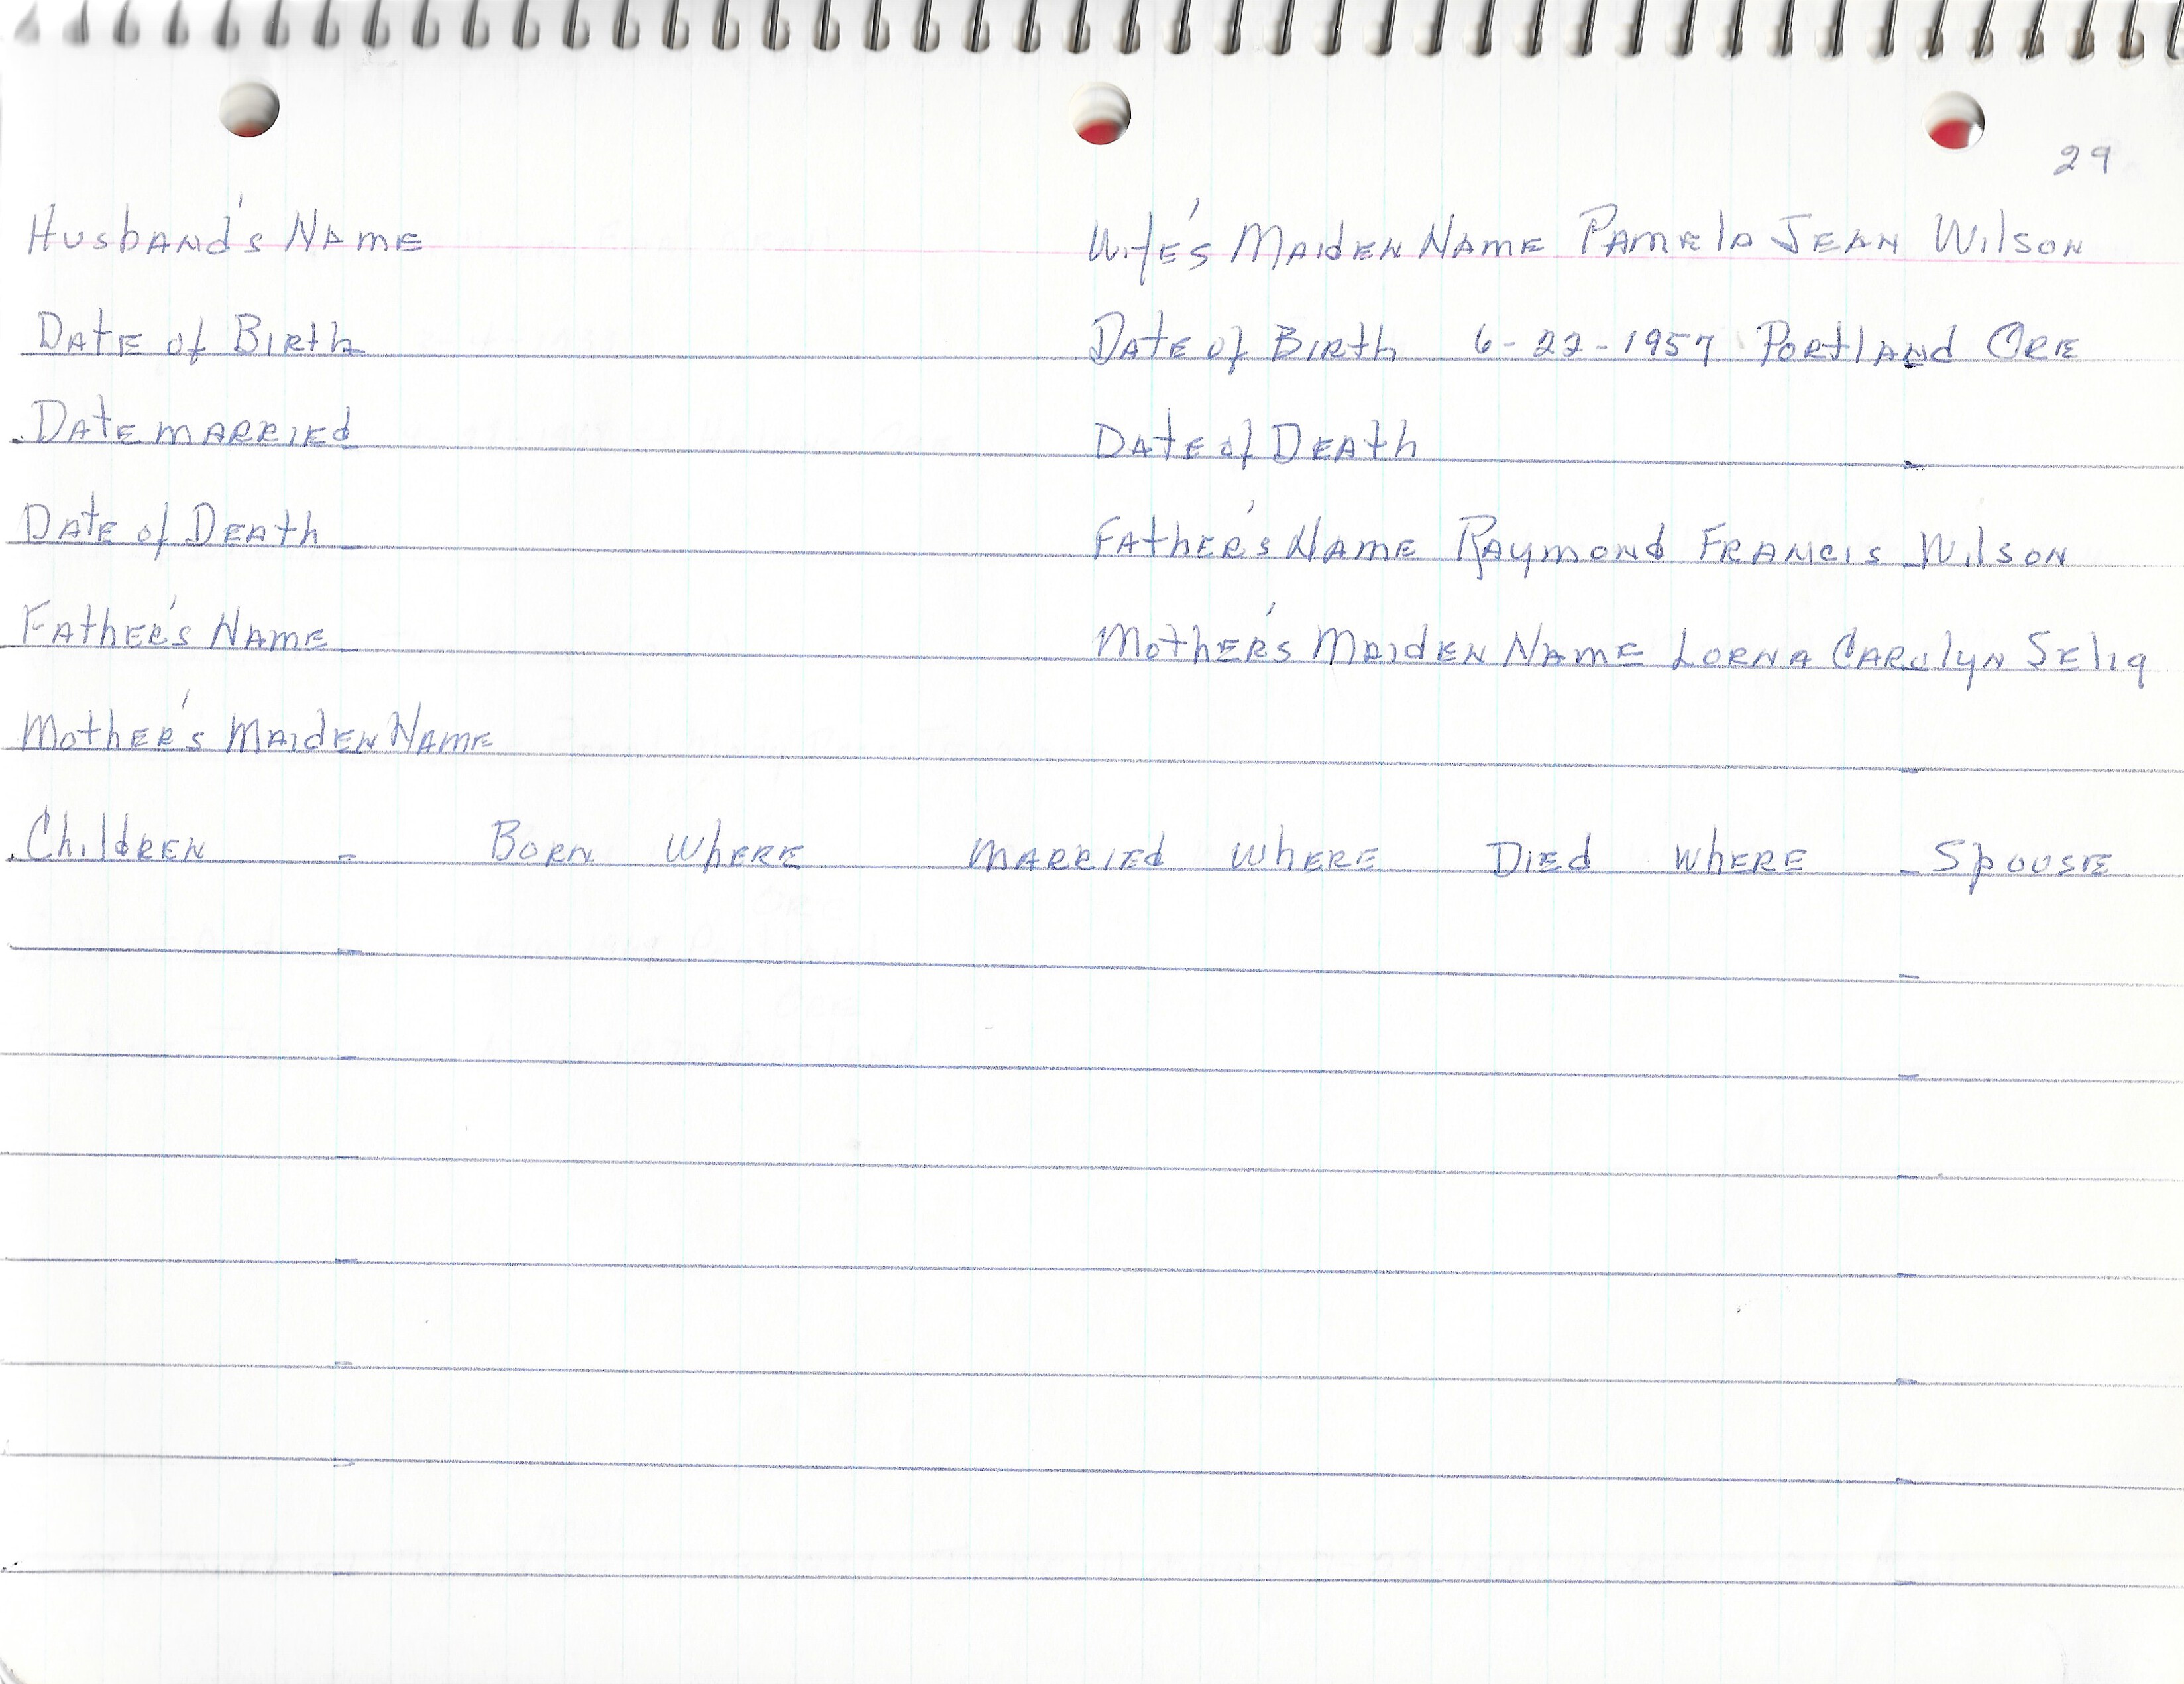 29
Husband's Name Wife's Maiden Name Pamela Jean Wilson
Date of Birth Date of Birth 6-22-1957 Portland Ore
Date married Date of Death
Date of Death Father's Name Raymond Francis Wilson
Father's Name Mother's Maiden Name Lorna Carolyn Selig
Mother's Maiden Name
Children - Born Where Married Where Died Where - Spouse